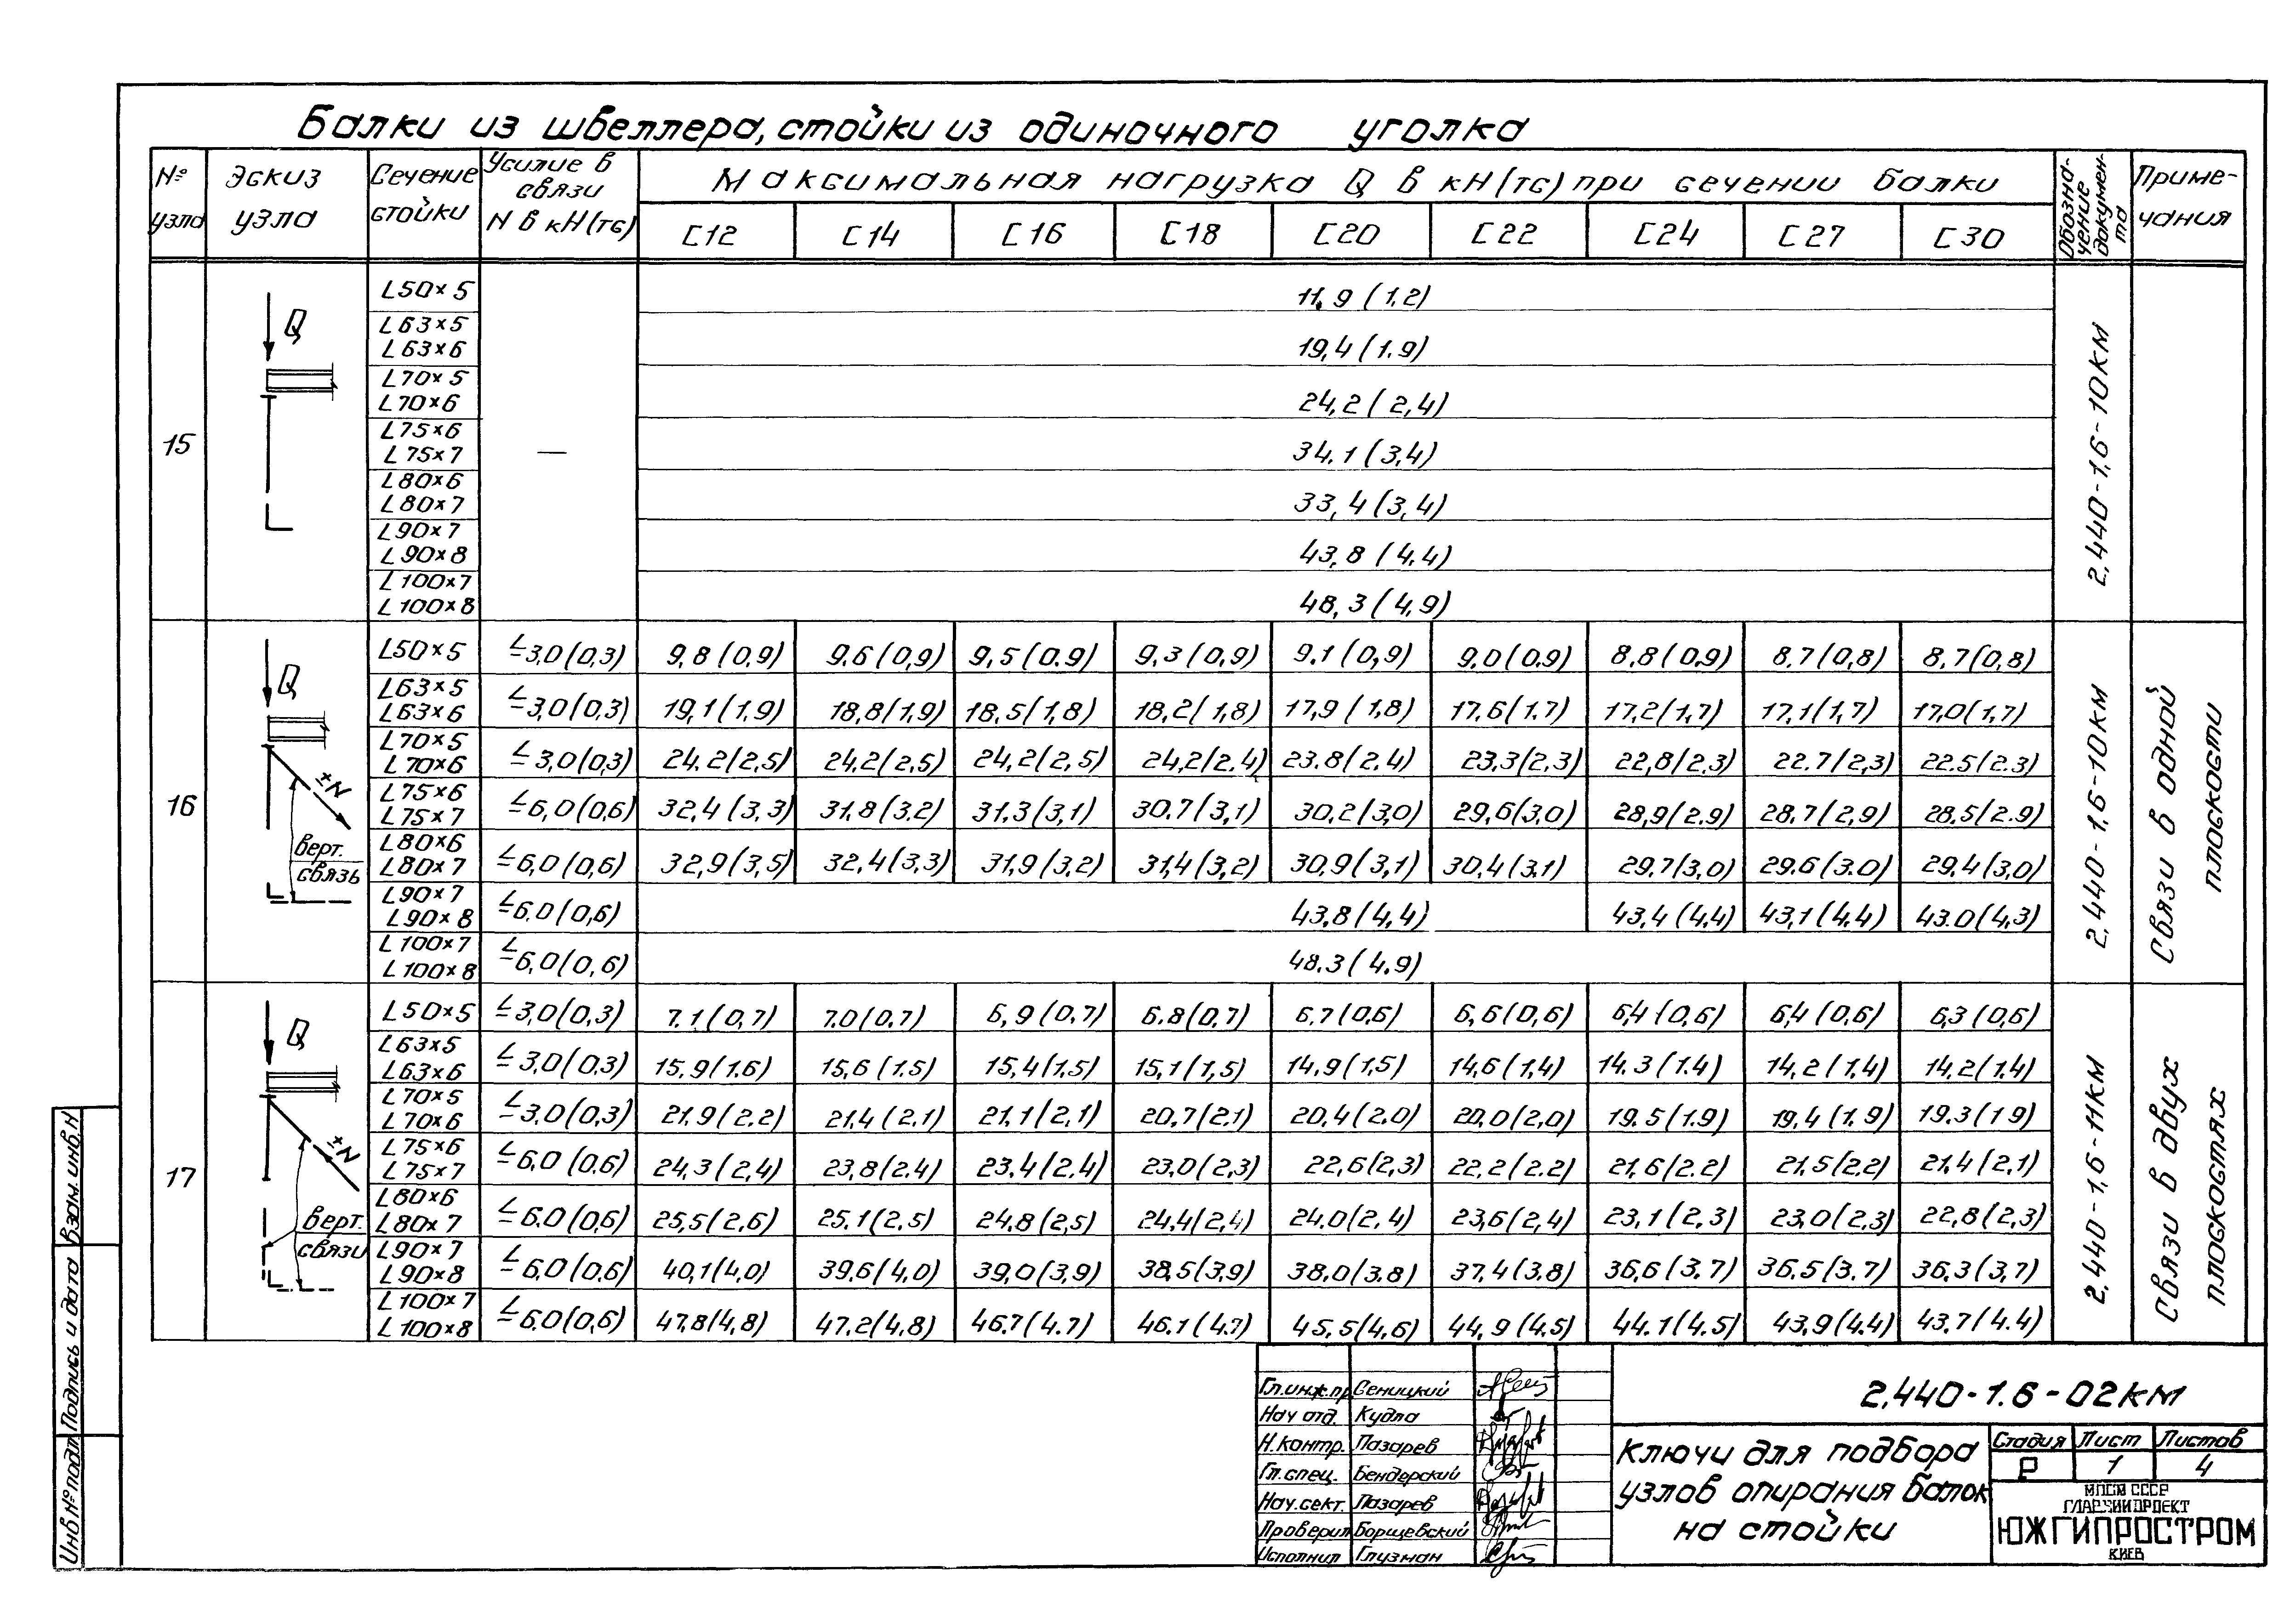 Балки из швеллера, стойки из одиночного уголка
№ узла | Эскиз узла | Сечение стойки | Усилие в связи N в кН(тс) | Максимальная нагрузка Q в кН(тс) при сечении балки | Обозна-чение докумен-та | Приме-чания
[12 | [14 | [16 | [18 | [20 | [22 | [24 | [27 | [30
15 | Q | — | 2.440-1.6-10КМ
L50×5 | 11,9 (1,2)
L63×5 L63×6 | 19,4 (1.9)
L70×5 L70×6 | 24,2 (2,4)
L75×6 L75×7 | 34.1 (3,4)
L80×6 L80×7 | 33,4 (3,4)
L90×7 L90×8 | 43,8 (4.4)
L100×7 L100×8 | 48,3 (4,9)
16 | Q | ±N | верт. связь | 2.440-1.6-10КМ | Связи в одной плоскости
L50×5 | ≤3,0(0,3) | 9,8(0,9) | 9,6(0,9) | 9,5(0.9) | 9,3(0,9) | 9.1(0,9) | 9,0(0.9) | 8,8(0.9) | 8.7(0,8) | 8,7(0,8)
L63×5 L63×6 | ≤3,0(0,3) | 19,1(1.9) | 18,8(1,9) | 18,5(1,8) | 18,2(1,8) | 17,9(1,8) | 17,6(1.7) | 17,2(1,7) | 17,1(1,7) | 17,0(1,7)
L70×5 L70×6 | ≤3,0(0,3) | 24.2(2,5) | 24,2(2,5) | 24,2(2,5) | 24,2(2.4) | 23.8(2,4) | 23.3(2,3) | 22,8(2.3) | 22.7(2,3) | 22.5(2.3)
L75×6 L75×7 | ≤6,0(0,6) | 32,4(3,3) | 31,8(3.2) | 31,3(3,1) | 30.7(3,1) | 30,2(3,0) | 29,6(3,0) | 28,9(2.9) | 28,7(2,9) | 28,5(2.9)
L80×6 L80×7 | ≤6,0(0,6) | 32,9(3,5) | 32,4(3,3) | 31,9(3,2) | 31,4(3,2) | 30,9(3,1) | 30,4(3.1) | 29.7(3,0) | 29.6(3.0) | 29,4(3,0)
L90×7 L90×8 | ≤6.0(0,6) | 43,8(4,4) | 43,4(4,4) | 43,1(4,4) | 43.0(4,3)
L100×7 L100×8 | ≤6,0(0,6) | 48.3(4.9)
17 | Q | ±N | верт. связи | 2.440-1.6-11КМ | Связи в двух плоскостях
L50×5 | ≤3,0(0,3) | 7.1(0,7) | 7.0(0.7) | 6,9(0.7) | 6.8(0,7) | 6,7(0,6) | 6,6(0,6) | 6,4(0,6) | 6,4(0,6) | 6,3(0,6)
L63×5 L63×6 | ≤3,0(0,3) | 15,9(1.6) | 15,6(1.5) | 15,4(1,5) | 15,1(1,5) | 14,9(1,5) | 14,6(1,4) | 14.3(1.4) | 14,2(1,4) | 14,2(1,4)
L70×5 L70×6 | ≤3,0(0,3) | 21,9(2.2) | 21,4(2.1) | 21,1(2,1) | 20,7(2.1) | 20,4(2.0) | 20,0(2,0) | 19.5(1.9) | 19,4(1.9) | 19.3(1 9)
L75×6 L75×7 | ≤6,0(0.6) | 24,3(2,4) | 23,8(2.4) | 23,4(2.4) | 23,0(2,3) | 22,6(2,3) | 22,2(2.2) | 21,6(2.2) | 21,5(2.2) | 21,4(2,1)
L80×6 L80×7 | ≤6.0(0,6) | 25,5(2,6) | 25.1(2,5) | 24,8(2,5) | 24,4(2,4) | 24.0(2,4) | 23,6(2,4) | 23,1(2,3) | 23,0(2,3) | 22,8(2,3)
L90×7 L90×8 | ≤6,0(0,6) | 40,1(4,0) | 39,6(4,0) | 39,0(3,9) | 38,5(3,9) | 38,0(3,8) | 37,4(3.8) | 36,6(3.7) | 36.5(3,7) | 36,3(3,7)
L100×7 L100×8 | ≤6.0(0,6) | 47,8(4,8) | 47.2(4,8) | 46.7(4.7) | 46.1(4.7) | 45.5(4,6) | 44,9(4,5) | 44.1(4.5) | 43,9(4.4) | 43,7(4.4)
Взам. инв. N
Подпись и дата
Инв № подл
Гл.инж.пр Сеницкий
Нач отд. Кудла
Н.контр. Лазарев
Гл.спец. Бендерский
Нач.сект. Лазарев
Проверил Борщевский
Исполнил Глузман
2.440-1.6-02КМ
Ключи для подбора
узлов опирания балок
на стойки
Стадия Лист Листов
Р 1 4
МПСМ СССР
ЮЖГИПРОСТРОМ
КИЕВ